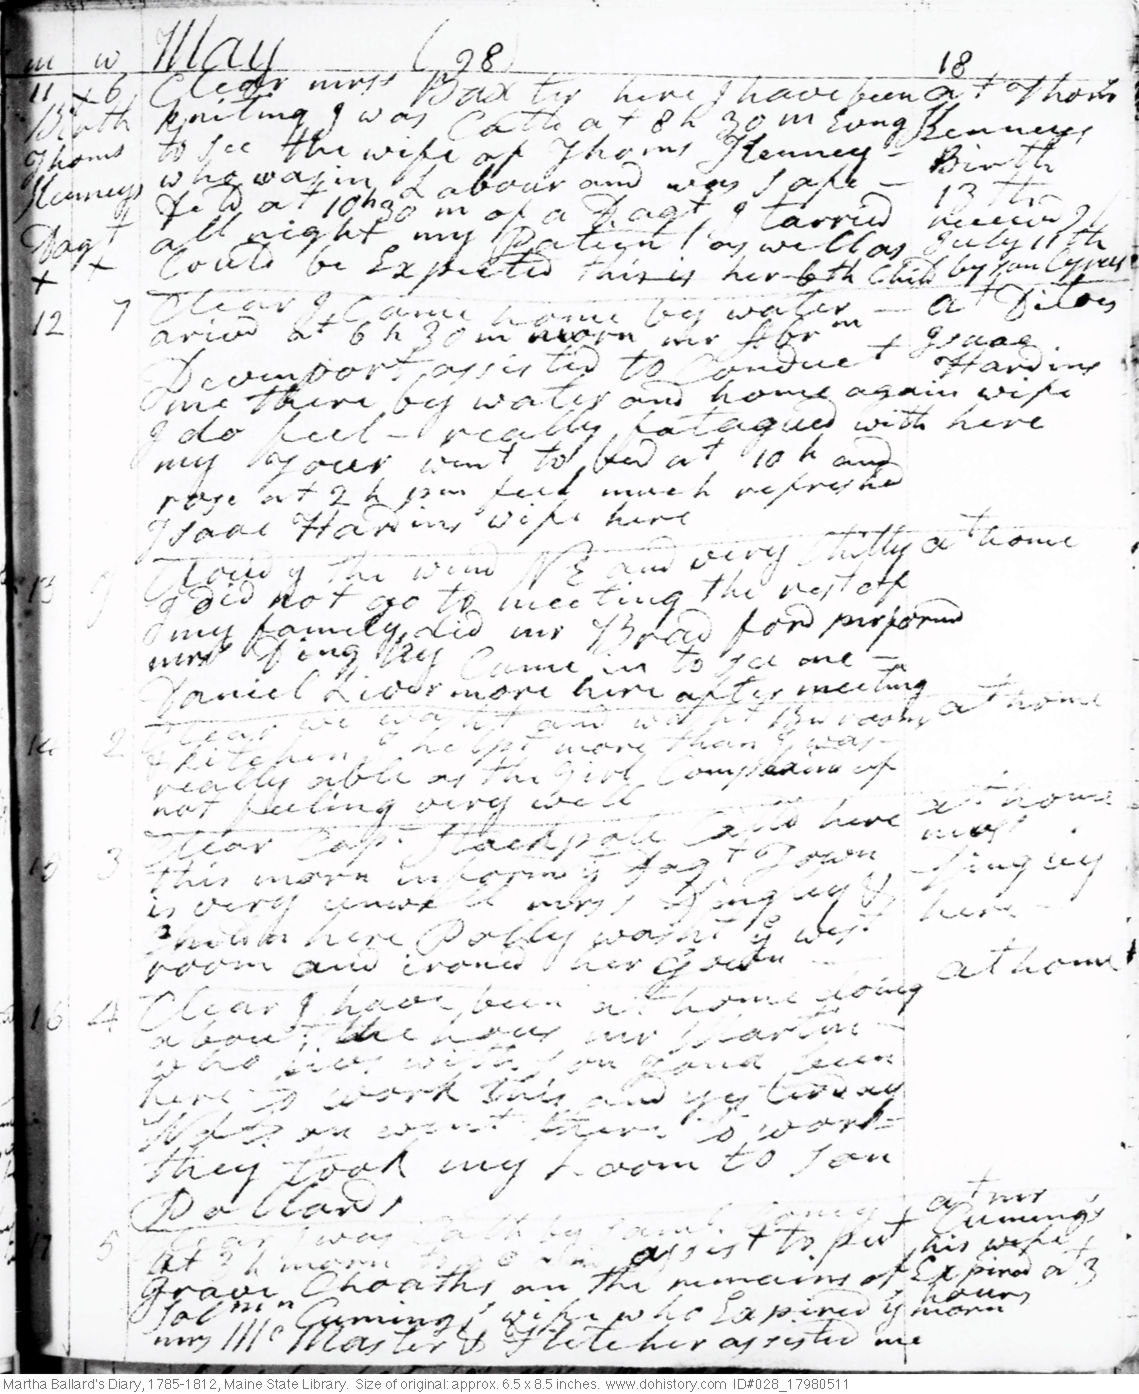 m w May (28) 18
11 6 Clear mrs Baxter here I have been at Thoms
Birth kniting I was Calld at 8 h 30 m Evng Kenneys
Thoms to see the wife of Thoms Kenney - Birth
Kenneys who was in Labour and was safe - 13th
Dagt Deld at 10 h 30 m of a Dagt I tarried receivd
all night my Patient as well as July 11th
x x Could be Expected this is her 6th Child by son Cyrus
12 7 Clear I Came home by water - at Ditoes
arivd at 6 h 30 m morn mr Abrm Isaac
Devenport assisted to Conduct + Hardins
me there by water and home again wife
I do feel - really fatagued with here
my went to bed at 10 h and
rose at 2 h pm feel much refreshd
Isaac Hardins wife here
13 Cloudy the wind NE and very at home
I did not go to meeting the rest of
my family did mr Bradford performd
mrs Dingley Came in to see me -
Daniel Livermore here after meeting
14 2 Clear we washt and washt Bedroom at home
& kitchen I helpt more than I was
really able as the girl Complains of
not feeling very well
15 3 Clear Capt Stackpole Calld here at home
this morn informs yt Town mrs
is very unwell mrs Dingley & Dingley
here Polly washt ye west here -
room and ironed her gown
16 4 Clear I have been at home doing at home
about the hous mr Martin -
who lives with son been
here to work this and yesterday
went there to work
they took my Loom to son
Pollards
17 5 Clear I was Calld by Saml at mr
at 3 h morn to go assist to put + Cumings
Grave Cloaths on the remains of his wife
Solmn Cumings wife who Expired ys Expired at 3
mrs McMaster & Fletcher assisted me hours
morn
Martha Ballard's Diary, 1785-1812, Maine State Library. Size of original: approx. 6.5 x 8.5 inches. www.dohistory.com ID#028_17980511